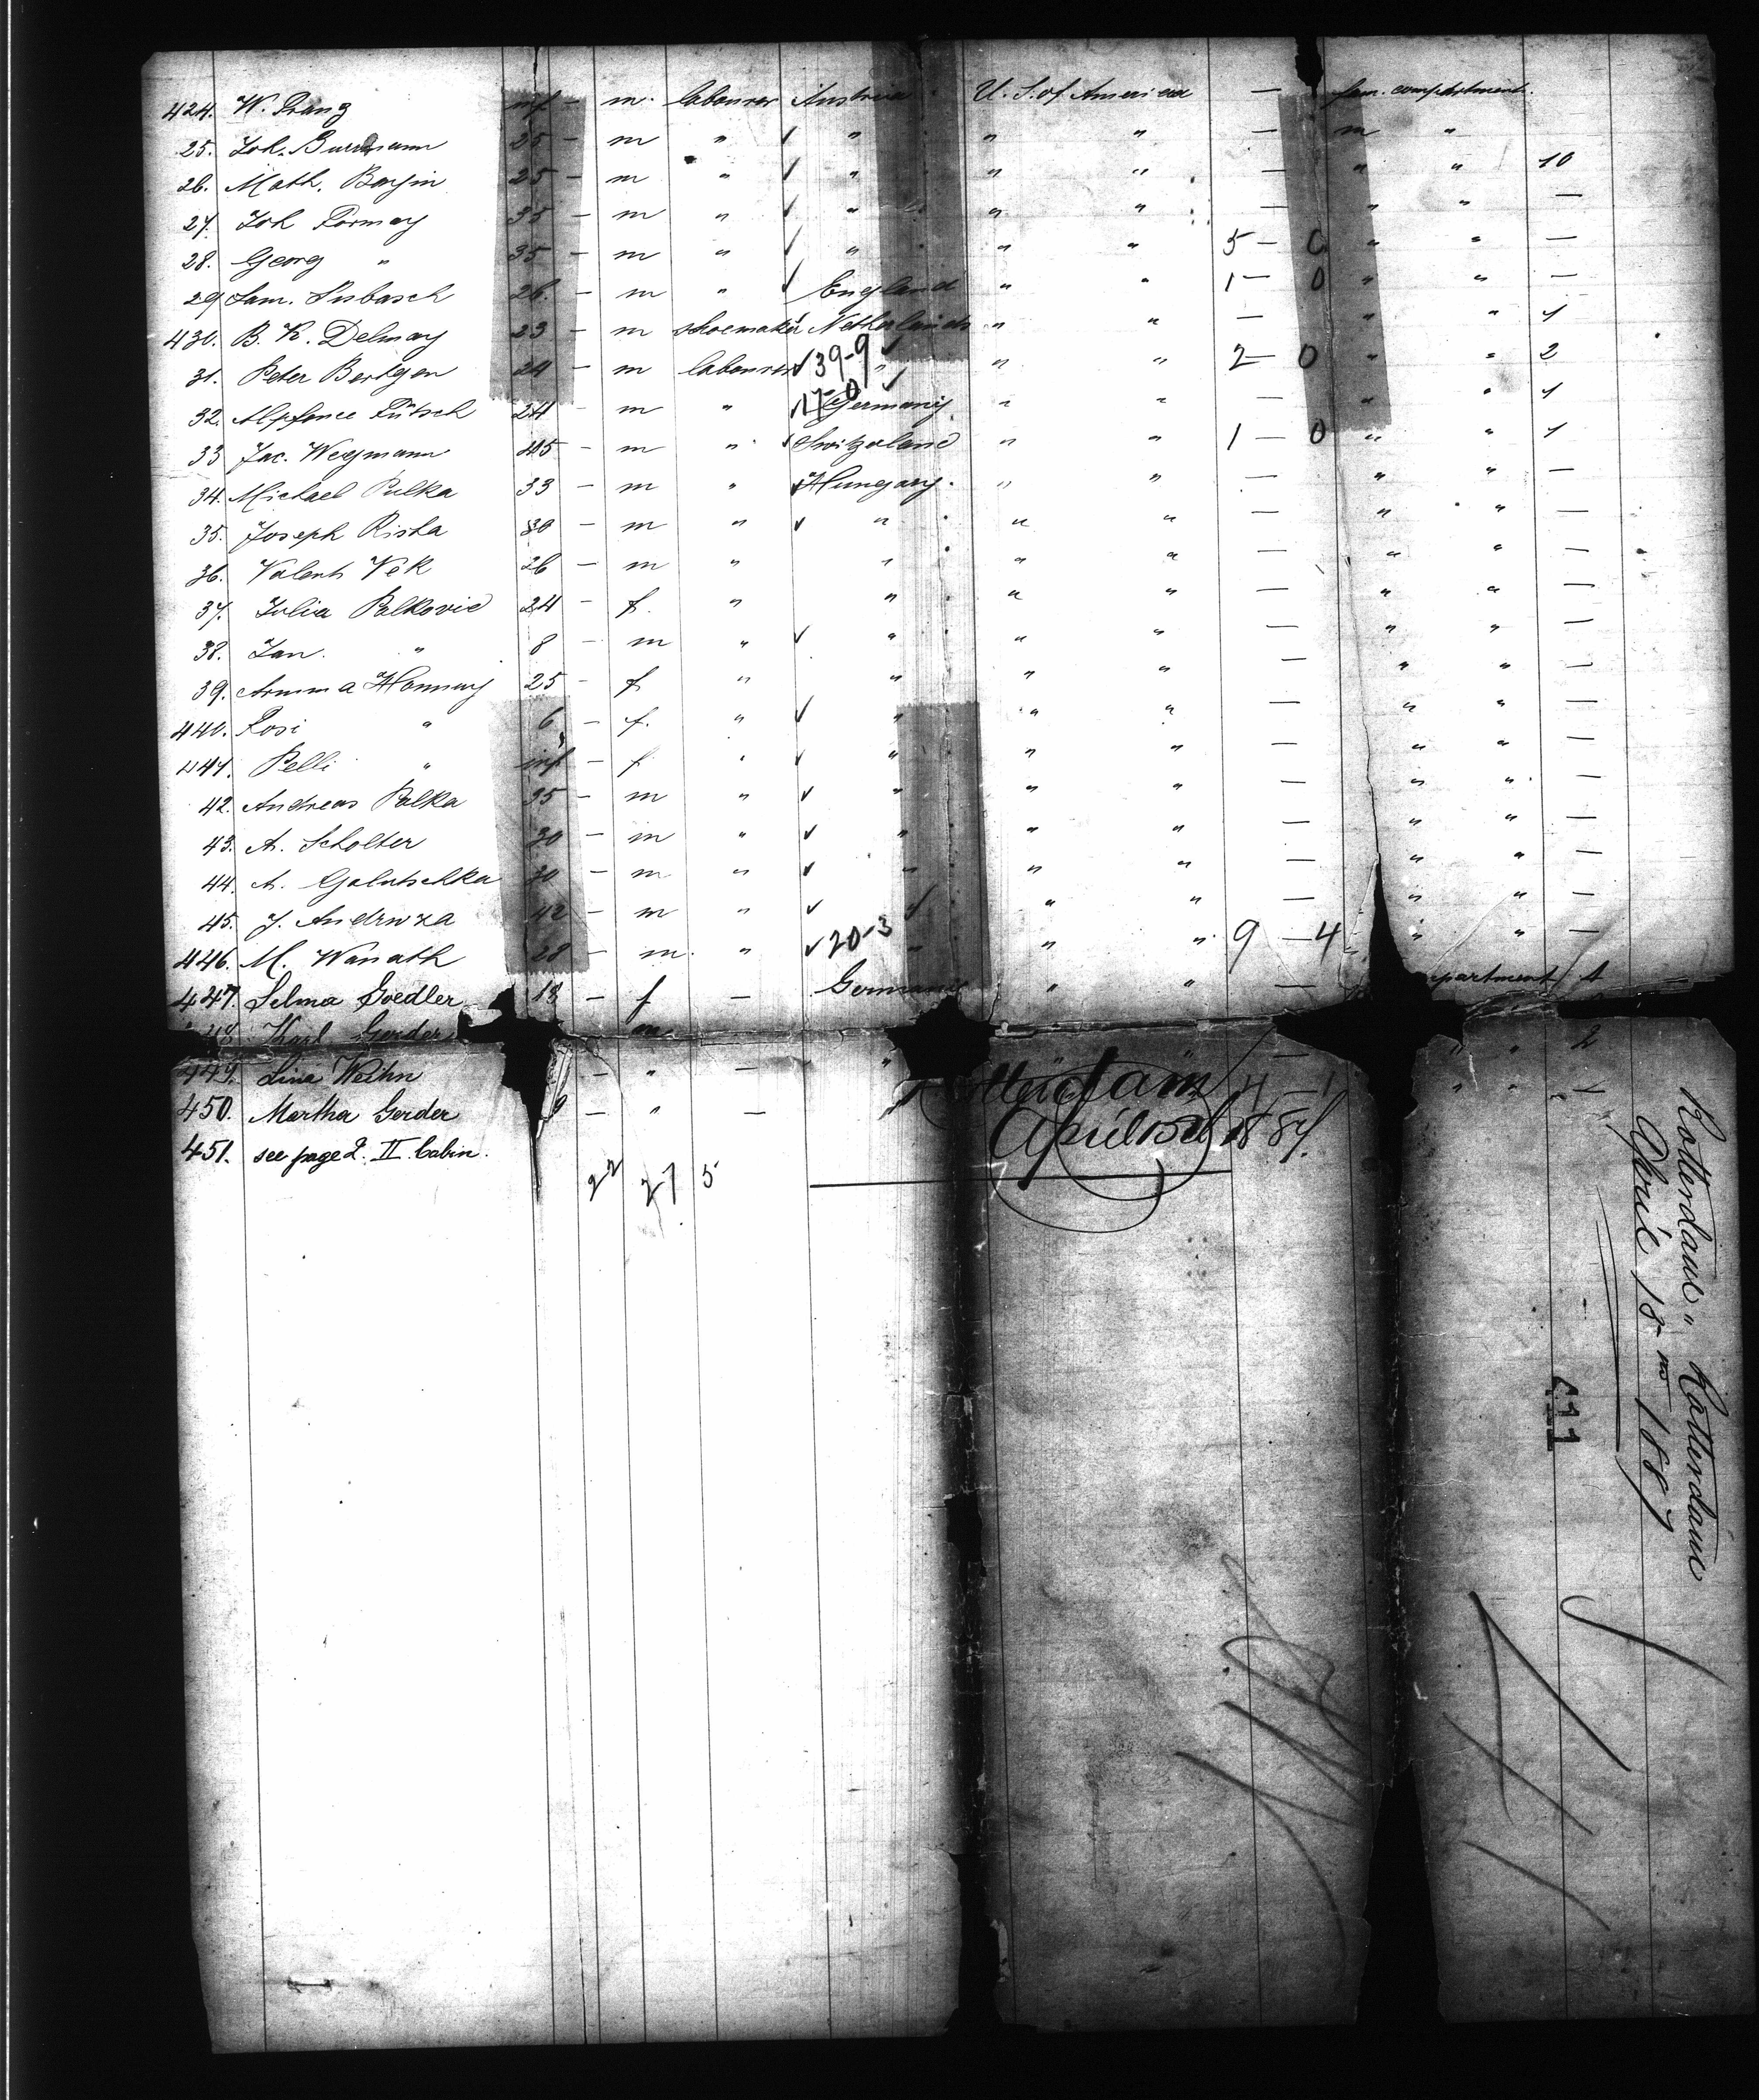 424. W. Prang inf - m. labourer Austria U. S. of America — fam. compartment.
25. Joh. Burrmann 25 - m " " " " — m "
26. Math. Bayin 25 - m " " " " — " " 10
27. Joh Formay 35 - m " " " " — " " —
28. Georg " 35 - m " " " " 5 — 0 " " —
29 Sam. Subasch 26. - m " England " " 1 — 0 " " —
430. B. K. Delmay 23 - m shoemaker Netherlands " " — " " 1
31. Peter Bertgen 24 - m labourer 39-9 " " " 2 — 0 " " 2
32. Alpfonce Fütsch 24 - m " 17-0 Germany " " " " 1
33 Jac. Wegmann 45 - m " Switzerland " " 1 — 0 " " 1
34. Michael Pulka 33 - m " Hungary. " " — " " —
35. Joseph Riska 30 - m " " " " — " " —
36. Valent Vek 26 - m " " " " — " " —
37. Julia Palkovic 24 - f. " " " " — " " —
38. Jan. " 8 - m " " " " — " " —
39. Amma Hannay 25 - f " " " " — " " —
440. Rosi " 6 - f. " " " " — " " —
441. Pelli " inf - f " " " " — " " —
42. Andreas Palka 35 - m " " " " — " " —
43. A. Scholter 30 - m " " " " — " " —
44. A. Galutschka 30 - m " " " " — " " —
45. J. Andruza 42 - m " " " " — " " —
446. M. Wanath 28 - m. " 20-3 " " " 9 — 4 " " —
447. Selma Goedler 18 - f — Germany " " — compartment 1
448 Karl Gerder m
449. Lina Weihn - " — " — " " 2
450. Martha Gerder 9 - " — " 4 — 1 " "
Rotterdam
April 15th 1887.
451. see page 2. II Cabin.
22 27 5
Rotterdam " Rotterdam
April 18 1887
411